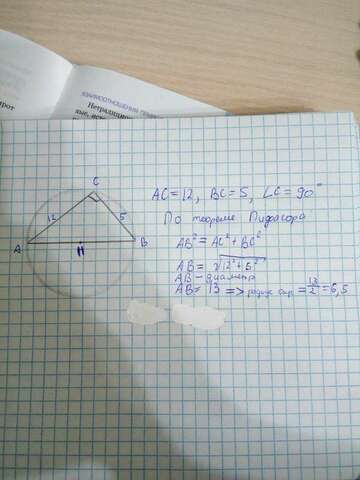 ВЗАИМООТНОШЕНИЯ
Нетрадицион
рот
C
12
5
A
H
B
AC=12, BC=5, ∠C=90°
По теореме Пифагора
AB²=AC²+BC²
AB=√12²+5²
AB-диаметр
AB=13 => радиус окр =13/2=6,5